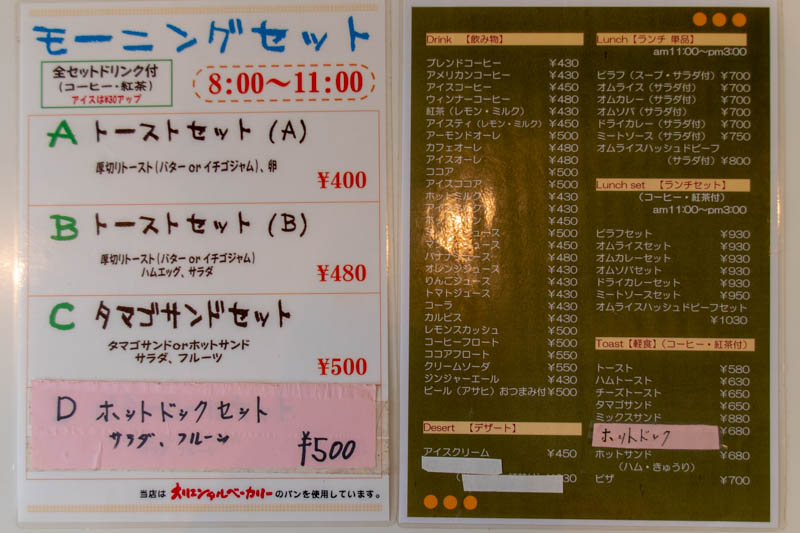 モーニングセット
全セットドリンク付
(コーヒー・紅茶)
アイスは¥30アップ
8:00〜11:00
A トーストセット (A)
厚切りトースト(バター or イチゴジャム)、卵
¥400
B トーストセット (B)
厚切りトースト(バター or イチゴジャム)
ハムエッグ、サラダ
¥480
C タマゴサンドセット
タマゴサンドorホットサンド
サラダ、フルーツ
¥500
D ホットドックセット
サラダ、フルーツ
¥500
当店は オリエンタルベーカリー のパンを使用しています。
Drink 【飲み物】
ブレンドコーヒー ¥430
アメリカンコーヒー ¥430
アイスコーヒー ¥450
ウィンナーコーヒー ¥480
紅茶(レモン・ミルク) ¥430
アイスティ(レモン・ミルク) ¥450
アーモンドオーレ ¥500
カフェオーレ ¥480
アイスオーレ ¥480
ココア ¥500
アイスココア ¥500
ホットミルク ¥430
¥430
¥450
ジュース ¥500
ジュース ¥450
ジュース ¥480
オレンジジュース ¥430
りんごジュース ¥430
トマトジュース ¥430
コーラ ¥430
カルピス ¥430
レモンスカッシュ ¥500
コーヒーフロート ¥500
ココアフロート ¥550
クリームソーダ ¥550
ジンジャーエール ¥430
ビール(アサヒ)おつまみ付 ¥500
Desert 【デザート】
アイスクリーム ¥450
Lunch【ランチ 単品】
am11:00〜pm3:00
ピラフ(スープ・サラダ付) ¥700
オムライス(サラダ付) ¥700
オムカレー(サラダ付) ¥700
オムソバ(サラダ付) ¥700
ドライカレー(サラダ付) ¥700
ミートソース(サラダ付) ¥750
オムライスハッシュドビーフ
(サラダ付) ¥800
Lunch set 【ランチセット】
(コーヒー・紅茶付)
am11:00〜pm3:00
ピラフセット ¥930
オムライスセット ¥930
オムカレーセット ¥930
オムソバセット ¥930
ドライカレーセット ¥930
ミートソースセット ¥950
オムライスハッシュドビーフセット
¥1030
Toast【軽食】(コーヒー・紅茶付)
トースト ¥580
ハムトースト ¥630
チーズトースト ¥650
タマゴサンド ¥650
ミックスサンド ¥880
ホットドック ¥680
ホットサンド ¥680
(ハム・きゅうり)
ピザ ¥700